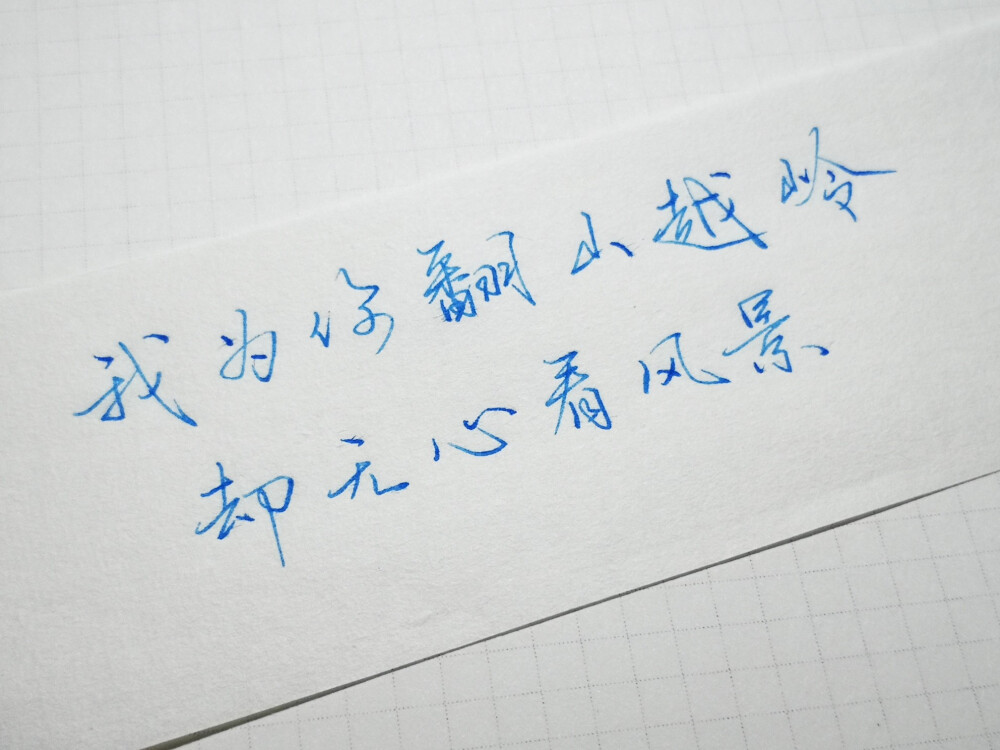 我为你翻山越岭
却无心看风景